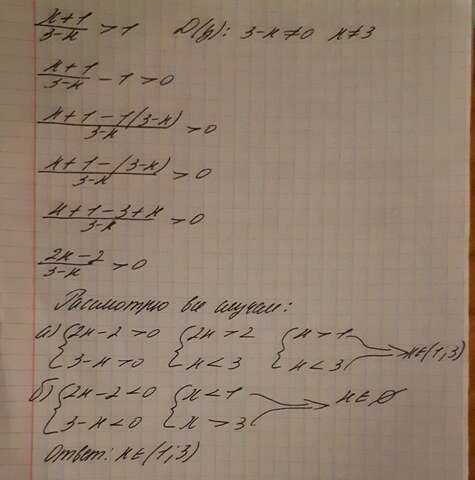 x+1/3-x > 1 D(y): 3-x≠0 x≠3
x+1/3-x - 1 > 0
x+1-1(3-x)/3-x > 0
x+1-(3-x)/3-x > 0
x+1-3+x/3-x > 0
2x-2/3-x > 0
Рассмотрю все случаи:
а) {2x-2>0 {2x>2 {x>1
3-x>0 x<3 x<3 x∈(1;3)
б) {2x-2<0 {x<1 x∈∅
3-x<0 x>3
Ответ: x∈(1;3)